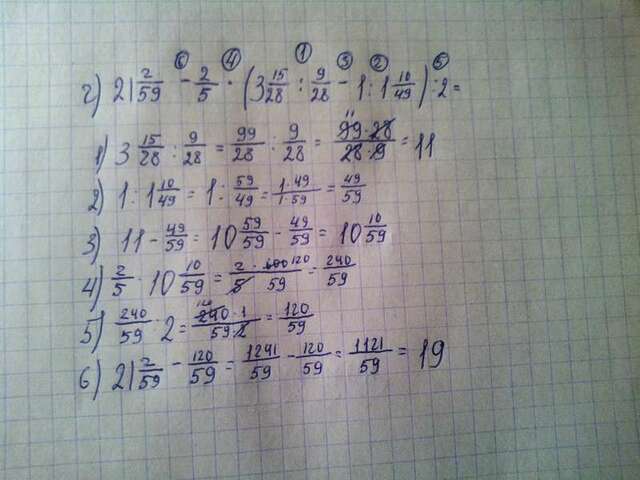 ⑥ ④ ① ③ ② ⑤
г) 21 2/59 - 2/5 · (3 15/28 : 9/28 - 1 : 1 10/49) : 2 =
1) 3 15/28 : 9/28 = 99/28 : 9/28 = 11 99·28/28·9 = 11
2) 1 : 1 10/49 = 1 : 59/49 = 1·49/1·59 = 49/59
3) 11 - 49/59 = 10 59/59 - 49/59 = 10 10/59
4) 2/5 · 10 10/59 = 2·600 120/5 59 = 240/59
5) 240/59 : 2 = 120 240·1/59·2 = 120/59
6) 21 2/59 - 120/59 = 1241/59 - 120/59 = 1121/59 = 19